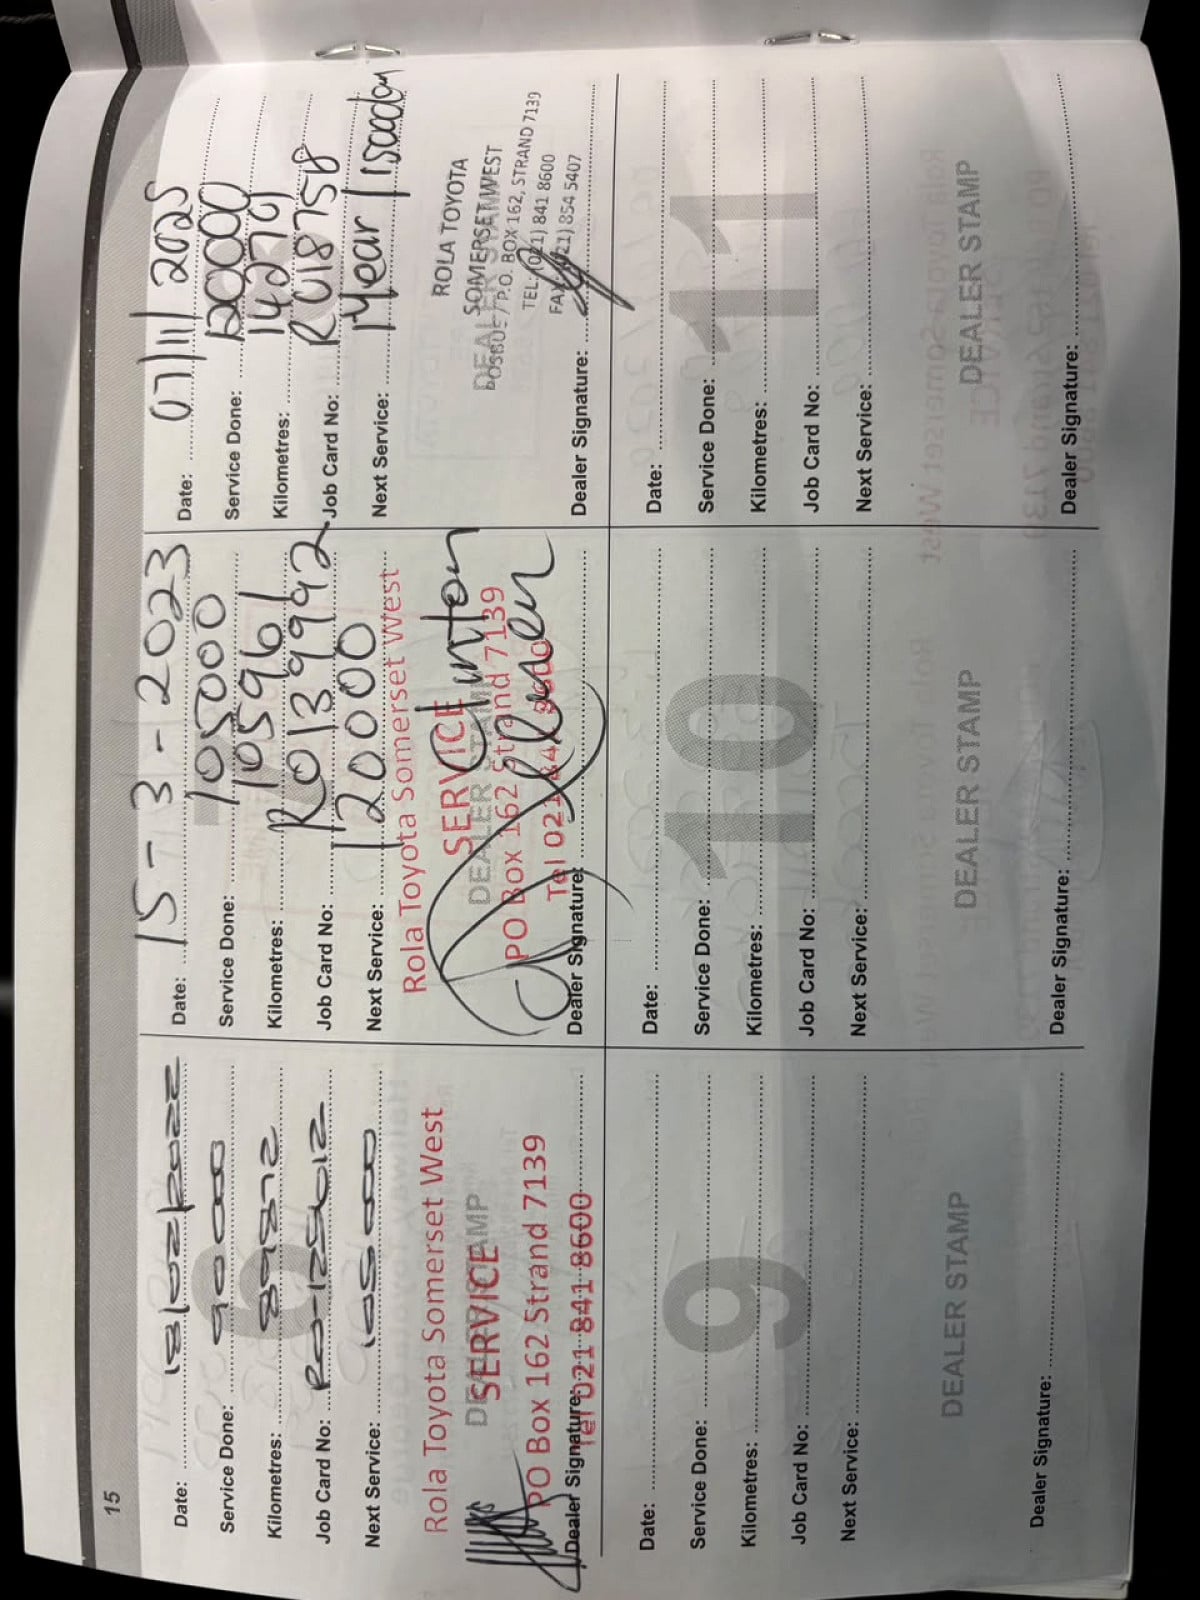 15
Date: 18/02/2022
Service Done: 90000
6
Kilometres: 89872
Job Card No: R0-125012
Next Service: 105000
Rola Toyota Somerset West
DEALER STAMP
SERVICE
PO Box 162 Strand 7139
Dealer Signature:
Tel 021 841 8600
Date: 15-3-2023
Service Done: 105000
Kilometres: 105961
Job Card No: R0139992
Next Service: 120000
Rola Toyota Somerset West
SERVICE
DEALER STAMP
PO Box 162 Strand 7139
Tel 021 841 8600
Dealer Signature:
Date: 07/11/2025
Service Done: 120000
Kilometres: 142701
Job Card No: R018758
Next Service: 1 Year / 15000km
ROLA TOYOTA
SOMERSET WEST
DEALER STAMP
POSBUS / P.O. BOX 162, STRAND 7139
TEL: (021) 841 8600
FAX: (021) 854 5407
Dealer Signature:
Date:
Service Done:
9
Kilometres:
Job Card No:
Next Service:
DEALER STAMP
Dealer Signature:
Date:
Service Done:
10
Kilometres:
Job Card No:
Next Service:
DEALER STAMP
Dealer Signature:
Date:
Service Done:
11
Kilometres:
Job Card No:
Next Service:
DEALER STAMP
Dealer Signature: